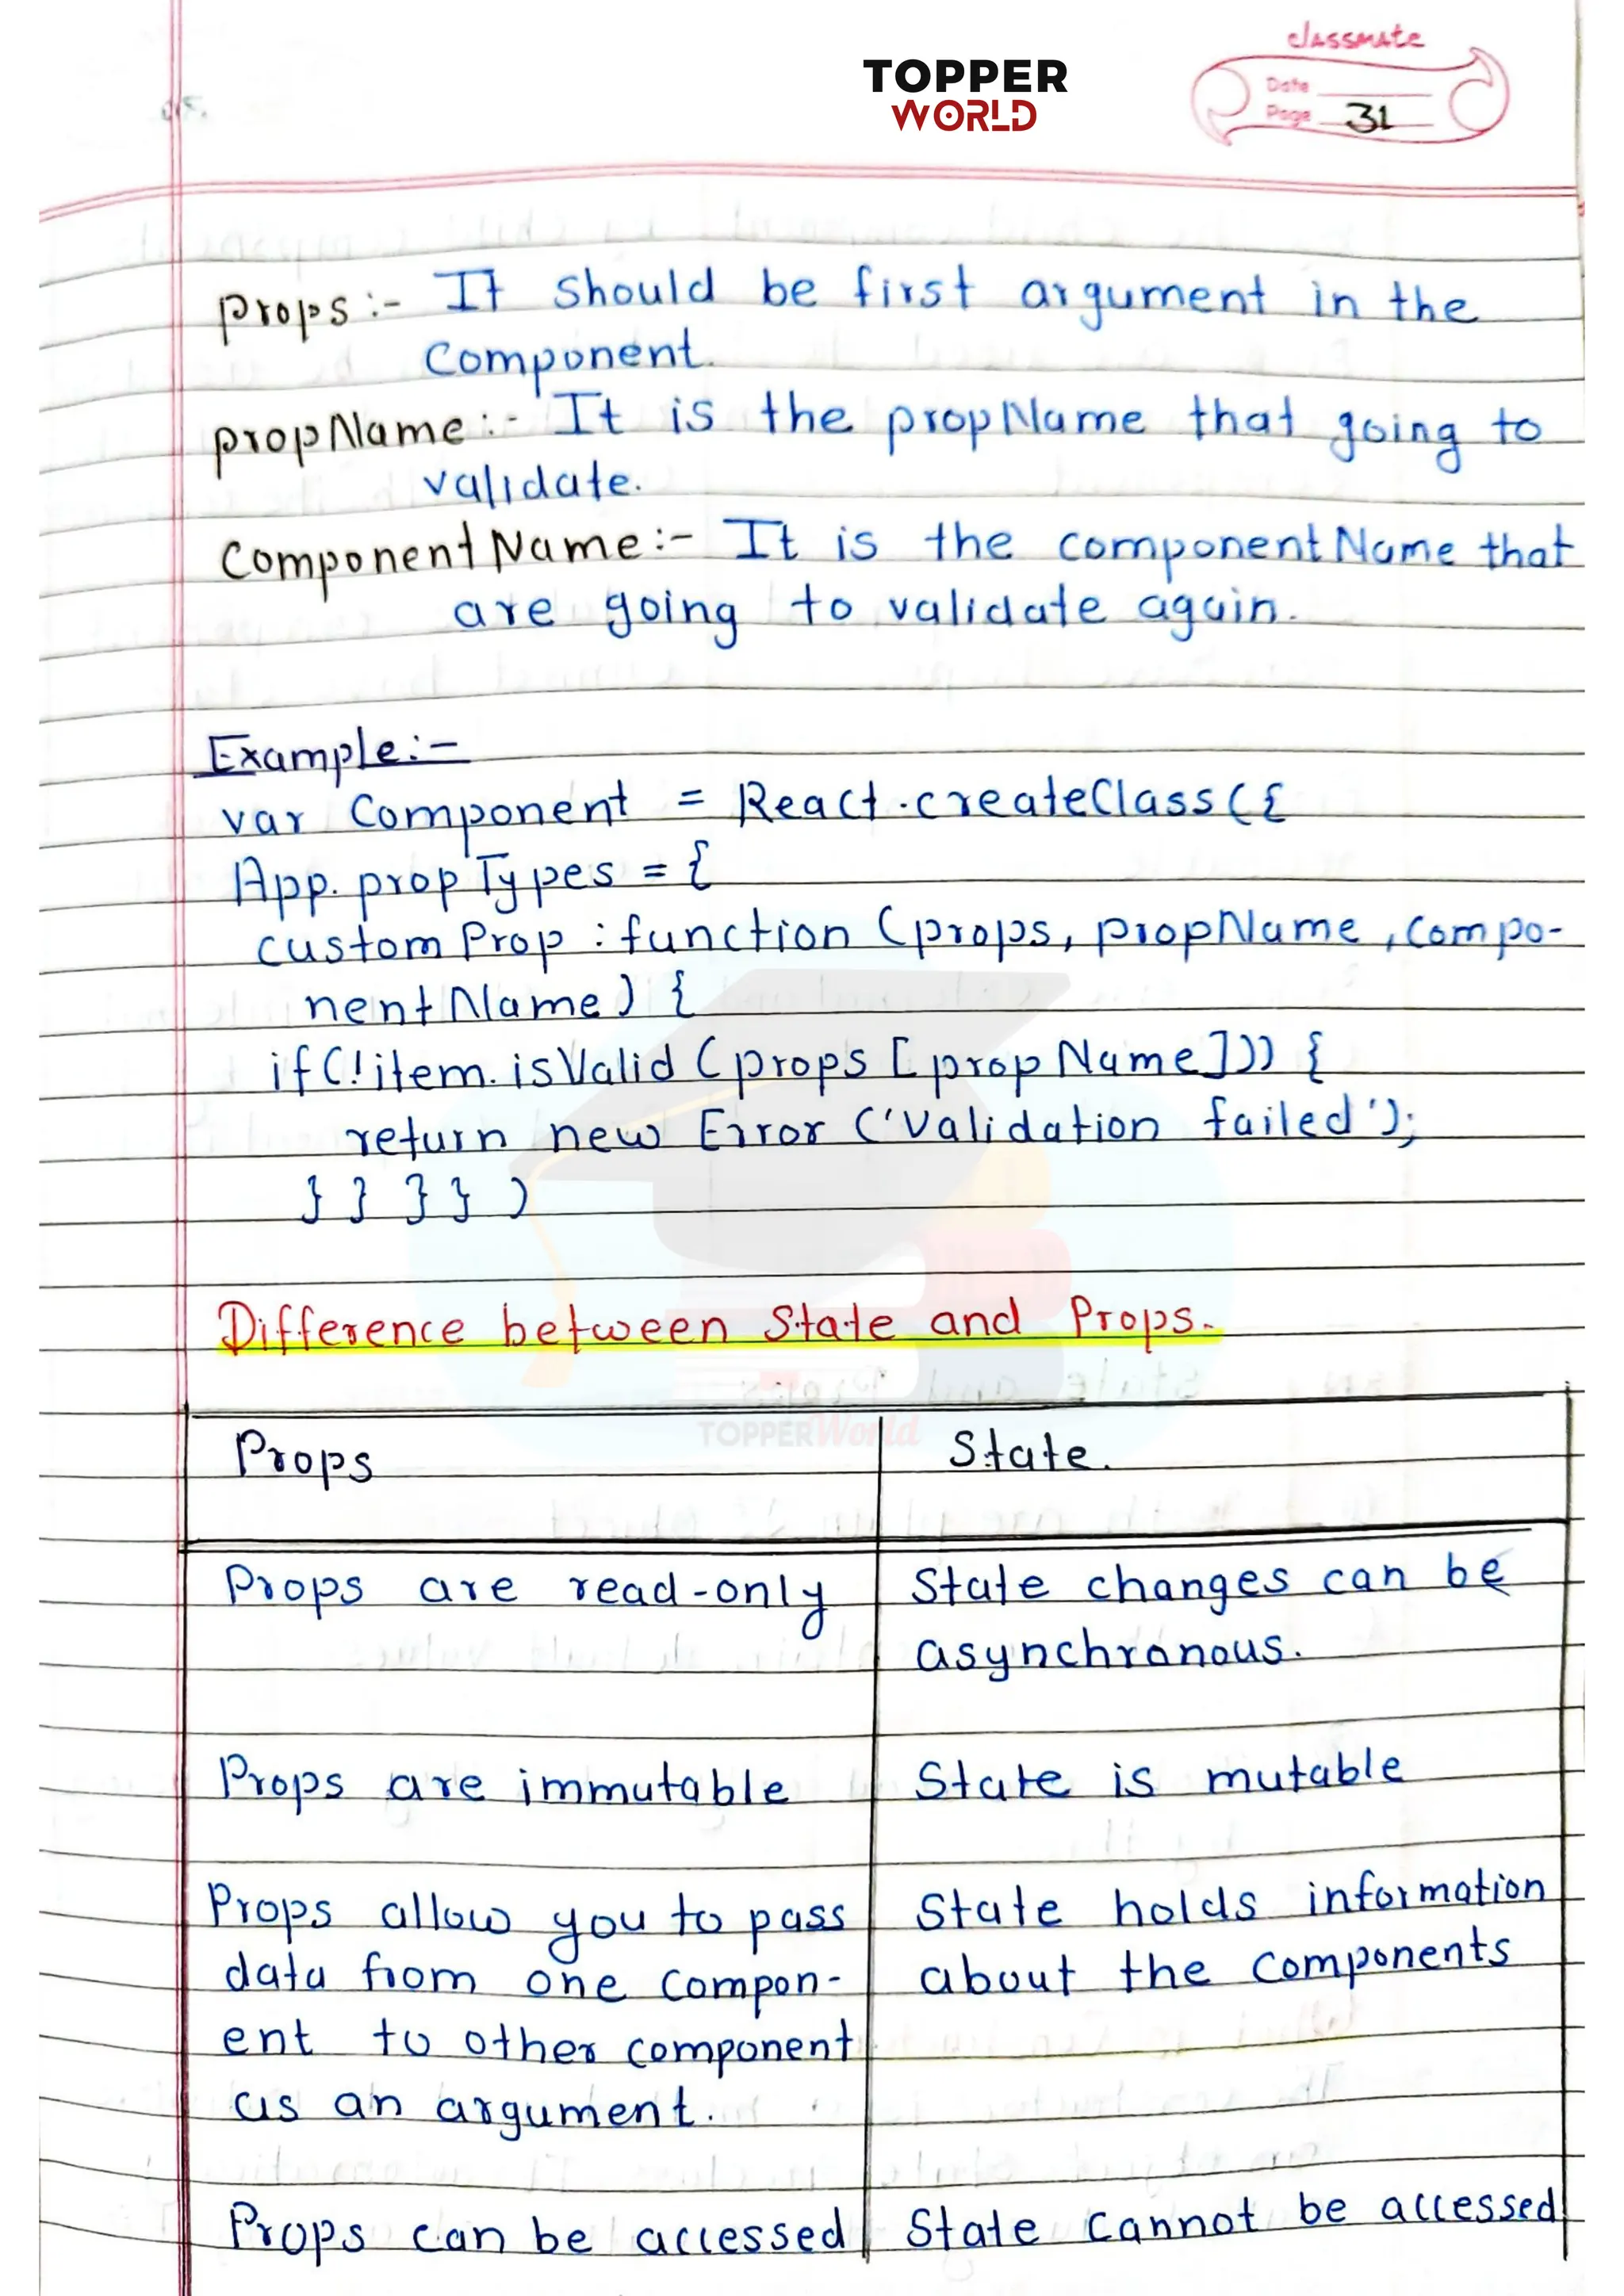 TOPPER
WORLD
classmate
Date
Page 31
props:- It should be first argument in the
component.
propName:- It is the propName that going to
validate.
ComponentName:- It is the componentName that
are going to validate again.
Example:-
var Component = React.createClass({
App.propTypes = {
customProp : function (props, propName, compo-
nentName) {
if(!item.isValid(props[propName])) {
return new Error ('Validation failed');
} } } } )
Difference between State and Props.
TOPPERWorld
Props State.
Props are read-only State changes can be
asynchronous.
Props are immutable State is mutable
Props allow you to pass State holds information
data from one compon- about the components
ent to other component
as an argument.
Props can be accessed State cannot be accessed